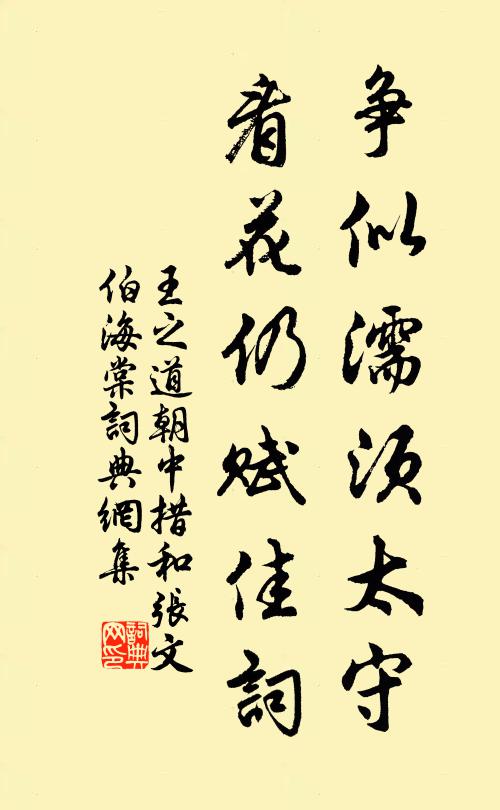 争似濡须太守
看花仍赋佳詞
王之道朝中措和張文
伯海棠詞典網集
詞典
网印